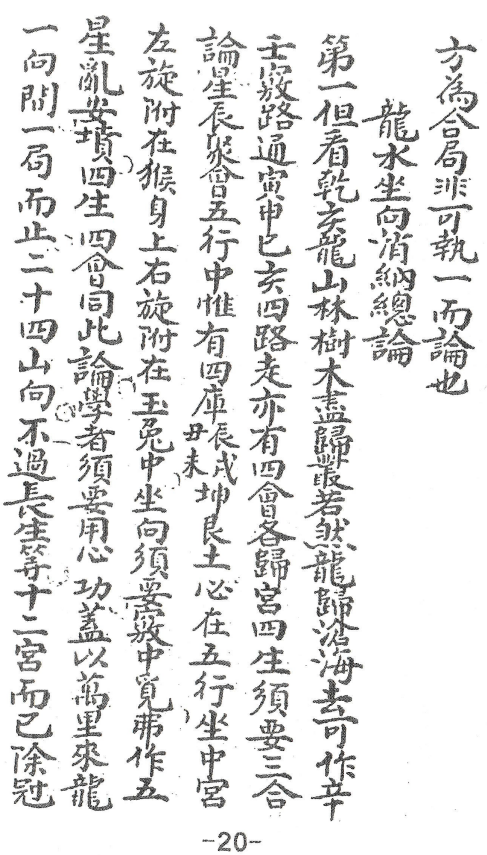 方為合局非可執一而論也
龍水坐向消納總論
第一但看乾亥龍山林樹木盡歸叢若然龍歸滄海去可作辛
壬竅路通寅申巳亥四路走亦有四會各歸宮四生須要三合
論星辰聚會五行中惟有四庫辰戌丑未坤艮土必在五行坐中宮
左旋附在猴身上右旋附在玉兔中坐向須要竅中覓弗作五
星亂安墳四生四會同此論學者須要用心功蓋以萬里來龍
一向問一局而止二十四山向不過長生等十二宮而已除冠
-20-